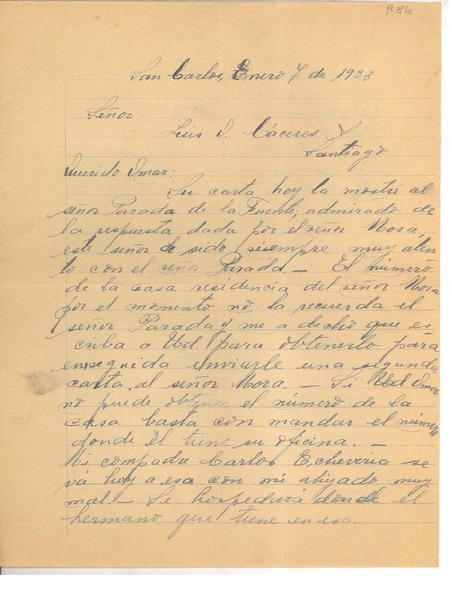 986
San Carlos, Enero 7 de 1933
Señor
Luis D. Cáceres
Santiago
Querido Omar:
Su carta hoy la mostré al
señor Parada de la Fuente, admirado de
la respuesta dada por el señor Mora,
este señor de sido siempre muy aten
to con el señor Parada. — El número
de la casa residencia del señor Mora
por el momento no la recuerda el
señor Parada y me a dicho que es
criba a Ud para obtenerlo para
enseguida enviarle una segunda
carta al señor Mora. — Si Ud Omar
no puede obtener el número de la
casa basta con mandar el número
donde él tiene su oficina. —
Mi compadre Carlos Echeveria se
vá hoy a esa con mi ahijado muy
mal. — Se hospedará donde el
hermano que tiene en esa.